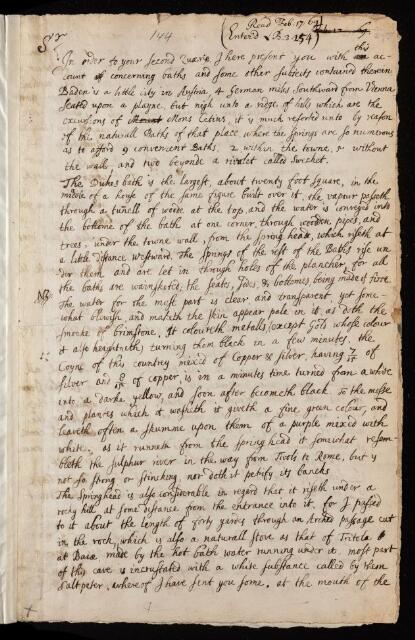 144
Read Feb. 17. 69
(Entered L.B. 3. 254)
Sr
In order to your second Quærie I here present you with this ac-
count of concerning baths and some other subjects contained therein
Baden is a little city in Austria, 4 German miles Southward from Vienna
Seated upon a playne, but nigh unto a ridge of hills which are the
excursions of Mons Cetius, it is much resorted unto by reason
of the naturall Baths of that place where the Springs are so numerous
as to afford 9 convenient Baths, 2 within the towne, without
the wall and two beyonde a rivolet called Swechet.
The Dukes bath is the largest, about twenty foot square, in the
middle of a house of the same figure built over it, the vapour passeth
through a tunell of woode at the top, and the water is conveyed into
the bottome of the bath at one corner through wooden pipes, and
trees, under the towne wall, from the Spring heade, which riseth at
a little distance westward. The Springs of the rest of the Baths rise un
der them and are let in through holes of the plancher, for all
the baths are wainsketed, the seats, sides, & bottomes being made of firre.
NB. The water for the most part is clear, and transparent, yet some-
what blewish and maketh the skin appear pale in it, as doth the
smoake of brimstone. It coloureth metalls (except Gold whose colour
it also heightneth) turning them black in a few minutes. the
Coyne of this country mixed of Copper & silver, having of
silver and of copper, is in a minutes time turned from a white
into a darke yellow, and soon after becometh black. To the mosse
and plants which it washeth it giveth a fine green colour, and
leaveth often a skumme upon them of a purple mixed with
white. as it runneth from the spring head it somewhat resem-
bleth the sulphur river in the way from Tivoli to Rome, but is
not so strong or stinking, nor doth it petrify its bancks
The Springhead is also considerable in regard that it riseth under a
rocky hill at some distance from the entrance into it, for I passed
to it about the length of forty yardes through an Arched passage cut
in the rock, which is also a naturall stove as that of Tritola
at Baiæ made by the hot bath water running under it, most part
of this cave is incrustated with a white substance called by them
Saltpeter, whereof I have sent you some. at the mouth of the